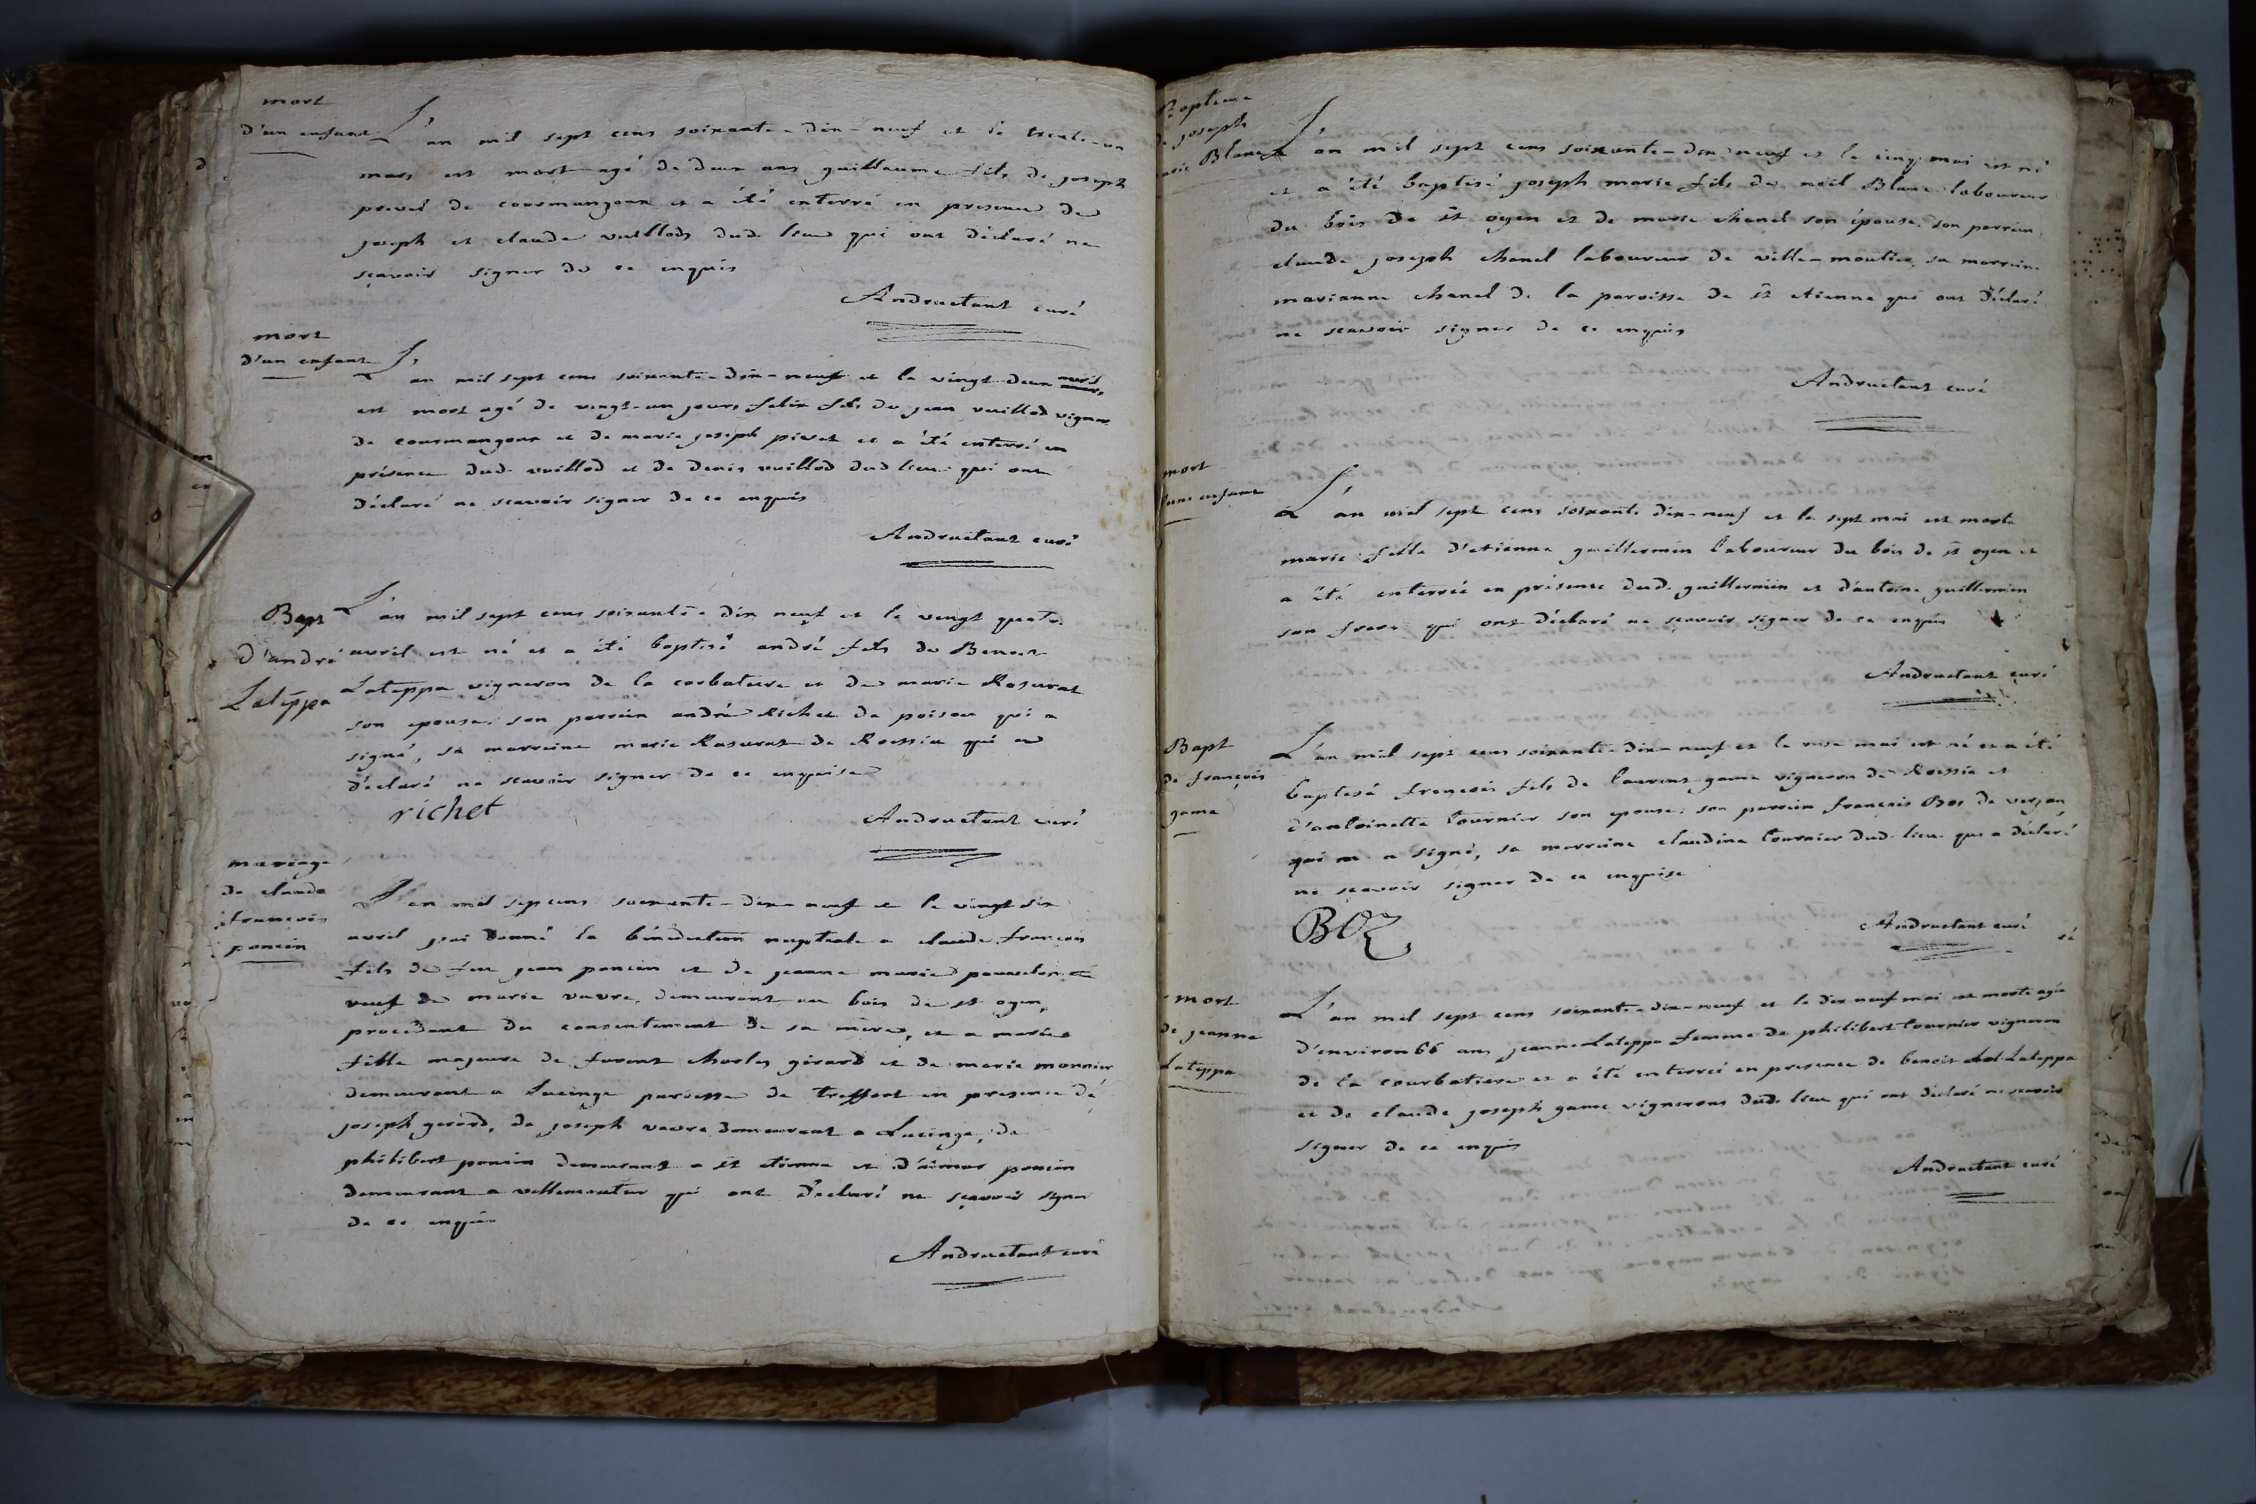 mort
d'un enfant
L'an mil sept cens soixante-dix-neuf et le trente-un
mars est mort agé de deux ans guillaume fils de joseph
pivet de courmangoux et a été enterré en presence de
joseph et claude vuillods dud. lieu qui ont déclaré ne
sçavoir signer de ce enquis
Andructant curé
mort
d'un enfant
L'an mil sept cens soixante-dix-neuf et le vingt deux avril
est mort agé de vingt-un jours felix fils de jean vuillod vigner
de courmangoux et de marie joseph pivet et a été enterré en
présence dud. vuillod et de denis vuillod dud lieu qui ont
déclaré ne scavoir signer de ce enquis
Andructant curé
Bapt
d'andré
Lateppa
L'an mil sept cens soixante-dix neuf et le vingt quatre
avril est né et a été baptisé andré fils de Benoit
Lateppa vigneron de la corbatiere et de marie Rasurat
son epouse, son parrain andré Richet de poisou qui a
signé, sa marraine marie Rasurat de Rossia qui a
déclaré ne scavoir signer de ce enquise
richet
Andructant curé
mariage
de claude
françois
poncin
L'an mil sept cens soixante-dix-neuf et le vingt six
avril j'ai donné la bénédiction nuptiale a claude françois
fils de feu jean poncin et de jeanne marie
veuf de marie vavre, demeurant au bois de st oyen,
procedant du consentement de sa mère, et a marie
fille majeure de furent charles girard et de marie monnier
demeurant a Lucinge paroisse de treffort en presence de
joseph gerard, de joseph vavre demeurant a Lucinge, de
philibert poncin demeurant a st etienne et d'aimar poncin
demeurant a villemoutier qui ont déclaré ne sçavoir signer
de ce enquis
Andructant curé
Bapteme
de joseph
marie Blanc
L'an mil sept cens soixante-dix-neuf et le cinq mai est né
et a été baptisé joseph marie fils de noël Blanc laboureur
du bois de st oyen et de marie chanel son épouse, son parrain
claude joseph chanel laboureur de ville-moutier, sa marraine
marianne chanel de la paroisse de st etienne qui ont déclaré
ne scavoir signer de ce enquis
Andructant curé
mort
d'une enfant
L'an mil sept cens soixante dix-neuf et le sept mai est morte
marie fille d'etienne guillermin laboureur du bois de st oyen et
a été enterrée en présence dud. guillermin et d'antoine guillermin
son frere qui ont déclaré ne sçavoir signer de ce enquis
Andructant curé
Bapt
de françois
game
L'an mil sept cens soixante-dix-neuf et le onze mai est né et a été
baptisé françois fils de laurent game vigneron de Rossia et
d'antoinette tournier son epouse, son parrain françois Boz de verjon
qui a signé, sa marraine claudine tournier dud. lieu qui a déclaré
ne sçavoir signer de ce enquise
BOZ
Andructant curé
mort
de jeanne
Lateppa
L'an mil sept cens soixante-dix-neuf et le dix neuf mai est morte agée
d'environ 66 ans jeanne Lateppa femme de philibert tournier vigneron
de la courbatiere et a été enterrée en presence de benoit Lateppa
et de claude joseph game vignerons dud. lieu qui ont déclaré ne scavoir
signer de ce enquis
Andructant curé